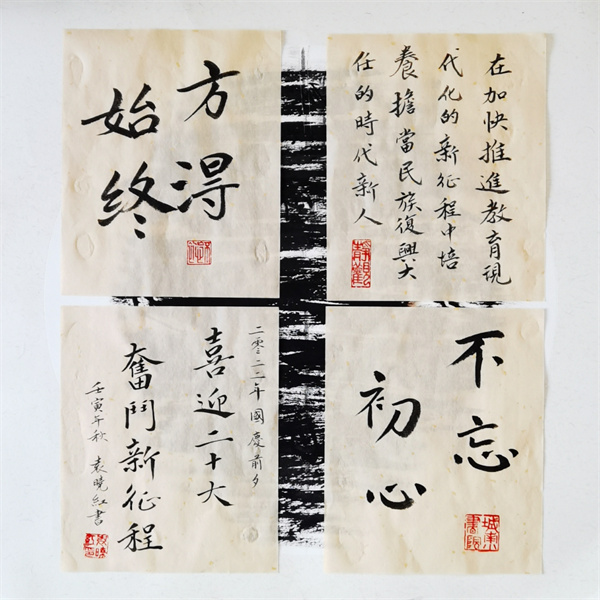 在加快推進教育現
代化的新征程中培
養擔當民族復興大
任的時代新人
靜觀
不忘
初心
方得
始終
二零二二年國慶前夕
喜迎二十大
奮鬥新征程
壬寅年秋 袁曉紅書